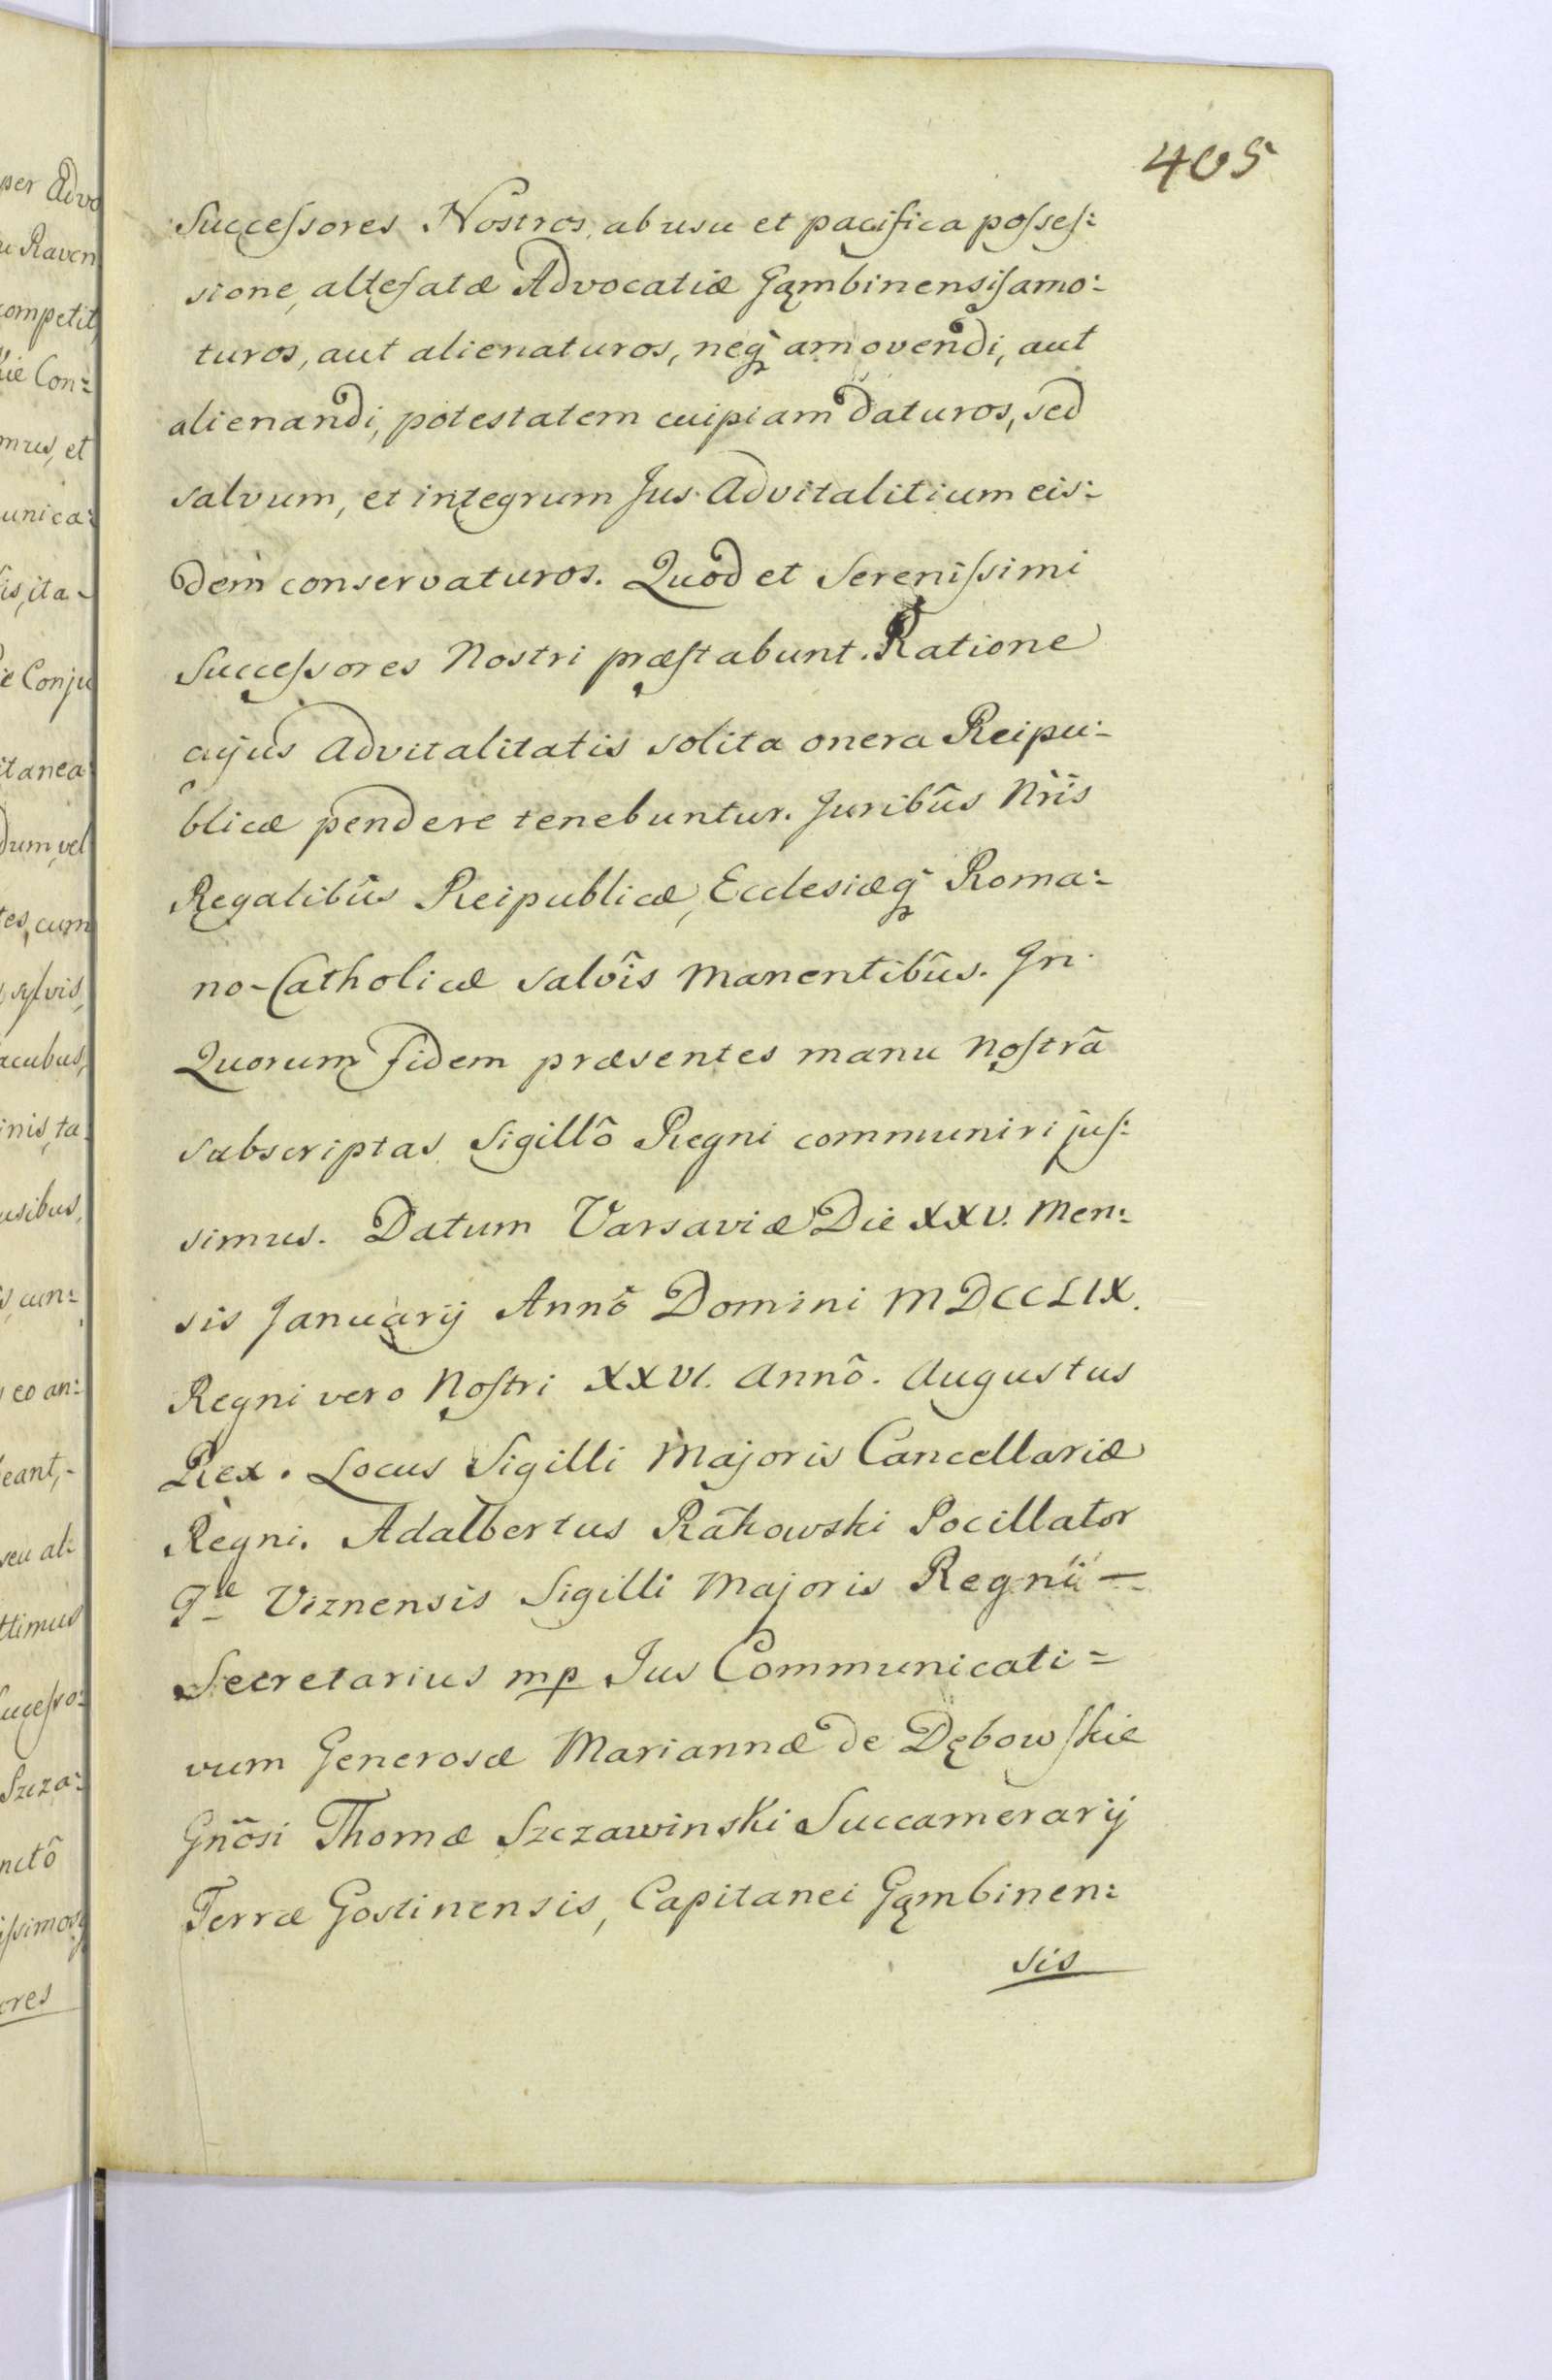 405
Succeſsores Nostros, ab usu et pacifica poſseſ:
sione, alteſatæ Advocatiæ Gąmbinensiſ amo:
turos, aut alienaturos, neq̃ amovendi, aut
alienandi, potestatem cuipiam daturos, sed
salvum, et integrum Jus Advitalitium eis:
dem conservaturos. Quod et Sereniſsimi
Succeſsores Nostri præſtabunt. Ratione
cujus Advitalitatis solita onera Reipu:
blicæ pendere tenebuntur. Juribûs Nr̃is
Regalibûs Reipublicæ, Ecclesiæq̃ Roma:
no-Catholicæ salvîs manentibûs. In
Quorum fidem præsentes manu noſtrâ
subscriptas Sigillô Regni communiri juſ:
simus. Datum Varsaviæ Die XXV. Men:
sis Januarij Annô Domini MDCCLIX.
Regni vero Noſtri XXVI. Annô. Augustus
Rex. Locus Sigilli Majoris Cancellariæ
Regni. Adalbertus Rakowski Pocillator
Tæ Viznensis Sigilli Majoris Regni —
Secretarius mp Jus Communicati=
vum Generosæ Mariannæ de Dębowſkie
Gñosi Thomæ Szczawinski Succamerarij
Terræ Gostinensis, Capitanei Gąmbinen:
sis
per Advo
Raven
competit,
Con:
mus, et
unica:
is, ita-
e Conju
itanea
dum, vel
tes, cum
sylvis,
acubus,
inis, ta
usibus,
cun:
eo an:
eant,-
seu al:
ttimus
uceſso:
Szcza:
nctô
iſsimosq̃
ores